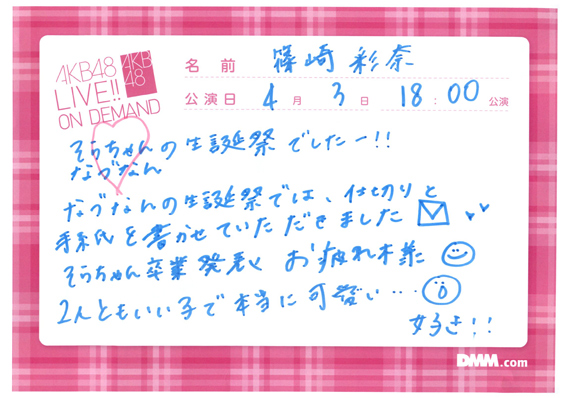 AKB48
LIVE!!
ON DEMAND
AKB
48
名前 篠崎 彩奈
公演日 4月3日 18:00公演
そらちゃんの生誕祭でしたー!!
なづなん
なづなんの生誕祭では、仕切りと
手紙を書かせていただきました
そらちゃん卒業発表 お疲れ様
2人ともいい子で本当に可愛い…
好き!!
DMM.com